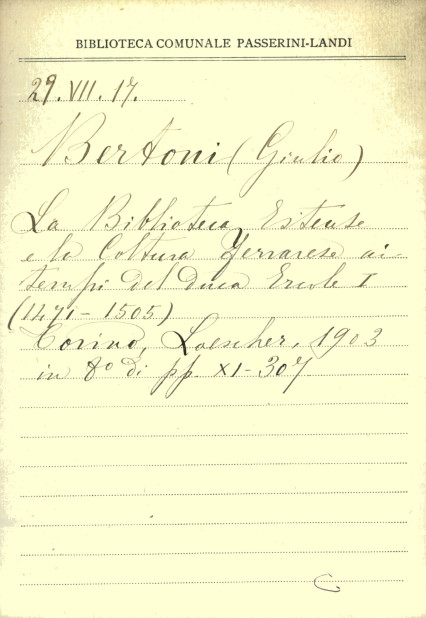 BIBLIOTECA COMUNALE PASSERINI-LANDI
29. VII. 17.
Bertoni (Giulio)
La Biblioteca Estense
e la Coltura Ferrarese ai
tempi del duca Ercole I
(1471-1505)
Torino, Loescher, 1903
in 8º di pp. XI-307